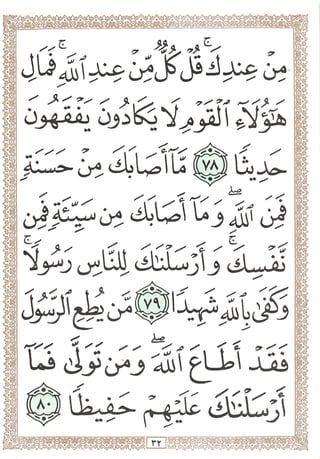 مِنْ عِندِكَ ۚ قُلْ كُلٌّ مِّنْ عِندِ اللَّهِ ۖ فَمَالِ
هَٰٓؤُلَآءِ الْقَوْمِ لَا يَكَادُونَ يَفْقَهُونَ
حَدِيثًا ﴿٧٨﴾ مَّآ أَصَابَكَ مِنْ حَسَنَةٍ
فَمِنَ اللَّهِ ۖ وَمَآ أَصَابَكَ مِن سَيِّئَةٍ فَمِن
نَّفْسِكَ ۚ وَأَرْسَلْنَٰكَ لِلنَّاسِ رَسُولًا ۚ
وَكَفَىٰ بِاللَّهِ شَهِيدًا ﴿٧٩﴾ مَّن يُطِعِ الرَّسُولَ
فَقَدْ أَطَاعَ اللَّهَ ۖ وَمَن تَوَلَّىٰ فَمَآ
أَرْسَلْنَٰكَ عَلَيْهِمْ حَفِيظًا ﴿٨٠﴾
٣٢